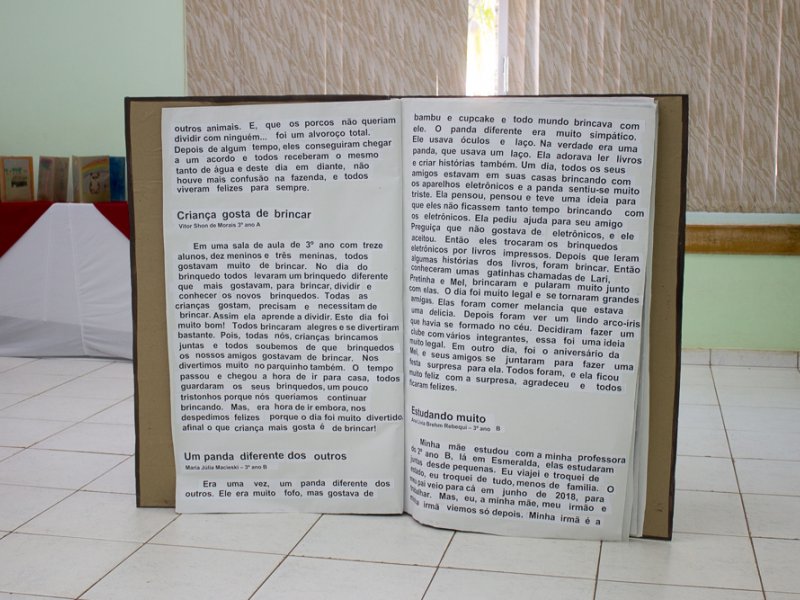 outros animais. E, que os porcos não queriam
dividir com ninguém... foi um alvoroço total.
Depois de algum tempo, eles conseguiram chegar
a um acordo e todos receberam o mesmo
tanto de água e deste dia em diante, não
houve mais confusão na fazenda, e todos
viveram felizes para sempre.
Criança gosta de brincar
Vitor Shon de Morais 3º ano A
Em uma sala de aula de 3º ano com treze
alunos, dez meninos e três meninas, todos
gostavam muito de brincar. No dia do
brinquedo todos levaram um brinquedo diferente
que mais gostavam, para brincar, dividir e
conhecer os novos brinquedos. Todas as
crianças gostam, precisam e necessitam de
brincar. Assim ela aprende a dividir. Este dia foi
muito bom! Todos brincaram alegres e se divertiram
bastante. Pois, todas nós, crianças brincamos
juntas e todos soubemos de que brinquedos
os nossos amigos gostavam de brincar. Nos
divertimos muito no parquinho também. O tempo
passou e chegou a hora de ir para casa, todos
guardaram os seus brinquedos, um pouco
tristonhos porque nós queríamos continuar
brincando. Mas, era hora de ir embora, nos
despedimos felizes porque o dia foi muito divertido,
afinal o que criança mais gosta é de brincar!
Um panda diferente dos outros
Maria Júlia Macieski – 3º ano B
Era uma vez, um panda diferente dos
outros. Ele era muito fofo, mas gostava de
bambu e cupcake e todo mundo brincava com
ele. O panda diferente era muito simpático.
Ele usava óculos e laço. Na verdade era uma
panda, que usava um laço. Ela adorava ler livros
e criar histórias também. Um dia, todos os seus
amigos estavam em suas casas brincando com
os aparelhos eletrônicos e a panda sentiu-se muito
triste. Ela pensou, pensou e teve uma ideia para
que eles não ficassem tanto tempo brincando com
os eletrônicos. Ela pediu ajuda para seu amigo
Preguiça que não gostava de eletrônicos, e ele
aceitou. Então eles trocaram os brinquedos
eletrônicos por livros impressos. Depois que leram
algumas histórias dos livros, foram brincar. Então
conheceram umas gatinhas chamadas de Lari,
Pretinha e Mel, brincaram e pularam muito junto
com elas. O dia foi muito legal e se tornaram grandes
amigas. Elas foram comer melancia que estava
uma delícia. Depois foram ver um lindo arco-íris
que havia se formado no céu. Decidiram fazer um
clube com vários integrantes, essa foi uma ideia
muito legal. Em outro dia, foi o aniversário da
Mel, e seus amigos se juntaram para fazer uma
festa surpresa para ela. Todos foram, e ela ficou
muito feliz com a surpresa, agradeceu e todos
ficaram felizes.
Estudando muito
Brehm Rebequi – 3º ano B
Minha mãe estudou com a minha professora
do 2º ano B, lá em Esmeralda, elas estudaram
juntas desde pequenas. Eu viajei e troquei de
estado, eu troquei de tudo, menos de família. O
meu pai veio para cá em junho de 2018, para
trabalhar. Mas, eu, a minha mãe, meu irmão e
minha irmã viemos só depois. Minha irmã é a